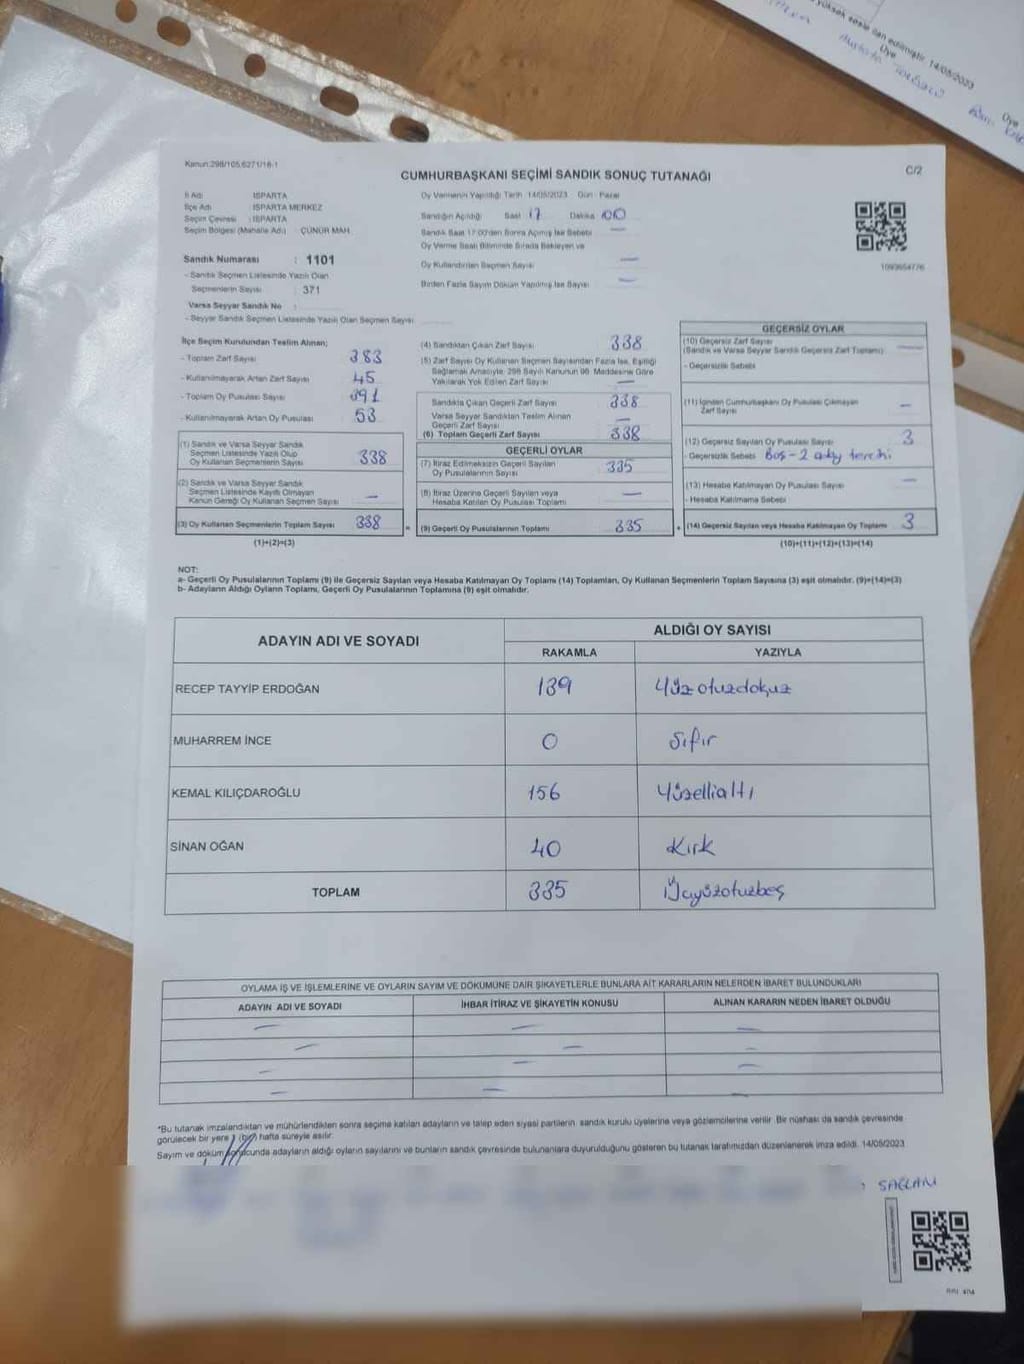 yüksek sesle ilan edilmiştir. 14/05/2023
Üye
Üye
Kanun:298/105,6271/16-1
C/2
CUMHURBAŞKANI SEÇİMİ SANDIK SONUÇ TUTANAĞI
İl Adı : ISPARTA
İlçe Adı : ISPARTA MERKEZ
Seçim Çevresi : ISPARTA
Seçim Bölgesi (Mahalle Adı) : ÇÜNÜR MAH.
Oy Vermenin Yapıldığı Tarih 14/05/2023 Gün : Pazar
Sandığın Açıldığı Saat 17 Dakika 00
Sandık Saat 17:00'den Sonra Açılmış İse Sebebi —
Oy Verme Saati Bitiminde Sırada Bekleyen ve
Oy Kullandırılan Seçmen Sayısı —
Birden Fazla Sayım Döküm Yapılmış İse Sayısı —
1093654776
Sandık Numarası : 1101
- Sandık Seçmen Listesinde Yazılı Olan
Seçmenlerin Sayısı : 371
Varsa Seyyar Sandık No :
- Seyyar Sandık Seçmen Listesinde Yazılı Olan Seçmen Sayısı
İlçe Seçim Kurulundan Teslim Alınan;
- Toplam Zarf Sayısı 383
- Kullanılmayarak Artan Zarf Sayısı 45
- Toplam Oy Pusulası Sayısı 391
- Kullanılmayarak Artan Oy Pusulası 53
(1) Sandık ve Varsa Seyyar Sandık
Seçmen Listesinde Yazılı Olup
Oy Kullanan Seçmenlerin Sayısı 338
(2) Sandık ve Varsa Seyyar Sandık
Seçmen Listesinde Kayıtlı Olmayan
Kanun Gereği Oy Kullanan Seçmen Sayısı —
(3) Oy Kullanan Seçmenlerin Toplam Sayısı 338
(1)+(2)=(3)
(4) Sandıktan Çıkan Zarf Sayısı 338
(5) Zarf Sayısı Oy Kullanan Seçmen Sayısından Fazla İse, Eşitliği
Sağlamak Amacıyla, 298 Sayılı Kanunun 98. Maddesine Göre
Yakılarak Yok Edilen Zarf Sayısı —
Sandıkta Çıkan Geçerli Zarf Sayısı 338
Varsa Seyyar Sandıktan Teslim Alınan
Geçerli Zarf Sayısı —
(6) Toplam Geçerli Zarf Sayısı 338
GEÇERLİ OYLAR
(7) İtiraz Edilmeksizin Geçerli Sayılan
Oy Pusulalarının Sayısı 335
(8) İtiraz Üzerine Geçerli Sayılan veya
Hesaba Katılan Oy Pusulası Toplamı —
= (9) Geçerli Oy Pusulalarının Toplamı 335
GEÇERSİZ OYLAR
(10) Geçersiz Zarf Sayısı
(Sandık ve Varsa Seyyar Sandık Geçersiz Zarf Toplamı) —
- Geçersizlik Sebebi
(11) İçinden Cumhurbaşkanı Oy Pusulası Çıkmayan
Zarf Sayısı —
(12) Geçersiz Sayılan Oy Pusulası Sayısı 3
- Geçersizlik Sebebi Boş-2 aday tercihi
(13) Hesaba Katılmayan Oy Pusulası Sayısı —
- Hesaba Katılmama Sebebi
+ (14) Geçersiz Sayılan veya Hesaba Katılmayan Oy Toplamı 3
(10)+(11)+(12)+(13)=(14)
NOT:
a- Geçerli Oy Pusulalarının Toplamı (9) ile Geçersiz Sayılan veya Hesaba Katılmayan Oy Toplamı (14) Toplamları, Oy Kullanan Seçmenlerin Toplam Sayısına (3) eşit olmalıdır. (9)+(14)=(3)
b- Adayların Aldığı Oyların Toplamı, Geçerli Oy Pusulalarının Toplamına (9) eşit olmalıdır.
ADAYIN ADI VE SOYADI
ALDIĞI OY SAYISI
RAKAMLA YAZIYLA
RECEP TAYYİP ERDOĞAN 139 Yüzotuzdokuz
MUHARREM İNCE 0 Sıfır
KEMAL KILIÇDAROĞLU 156 Yüzellialtı
SİNAN OĞAN 40 Kırk
TOPLAM 335 Üçyüzotuzbeş
OYLAMA İŞ VE İŞLEMLERİNE VE OYLARIN SAYIM VE DÖKÜMÜNE DAİR ŞİKAYETLERLE BUNLARA AİT KARARLARIN NELERDEN İBARET BULUNDUKLARI
ADAYIN ADI VE SOYADI İHBAR İTİRAZ VE ŞİKAYETİN KONUSU ALINAN KARARIN NEDEN İBARET OLDUĞU
— — —
— — —
— — —
— — —
*Bu tutanak imzalandıktan ve mühürlendikten sonra seçime katılan adayların ve talep eden siyasi partilerin sandık kurulu üyelerine veya gözlemcilerine verilir. Bir nüshası da sandık çevresinde
görülecek bir yere 1 (bir) hafta süreyle asılır.
Sayım ve döküm sonucunda adayların aldığı oyların sayılarını ve bunların sandık çevresinde bulunanlara duyurulduğunu gösteren bu tutanak tarafımızdan düzenlenerek imza edildi. 14/05/2023
SAĞLAM